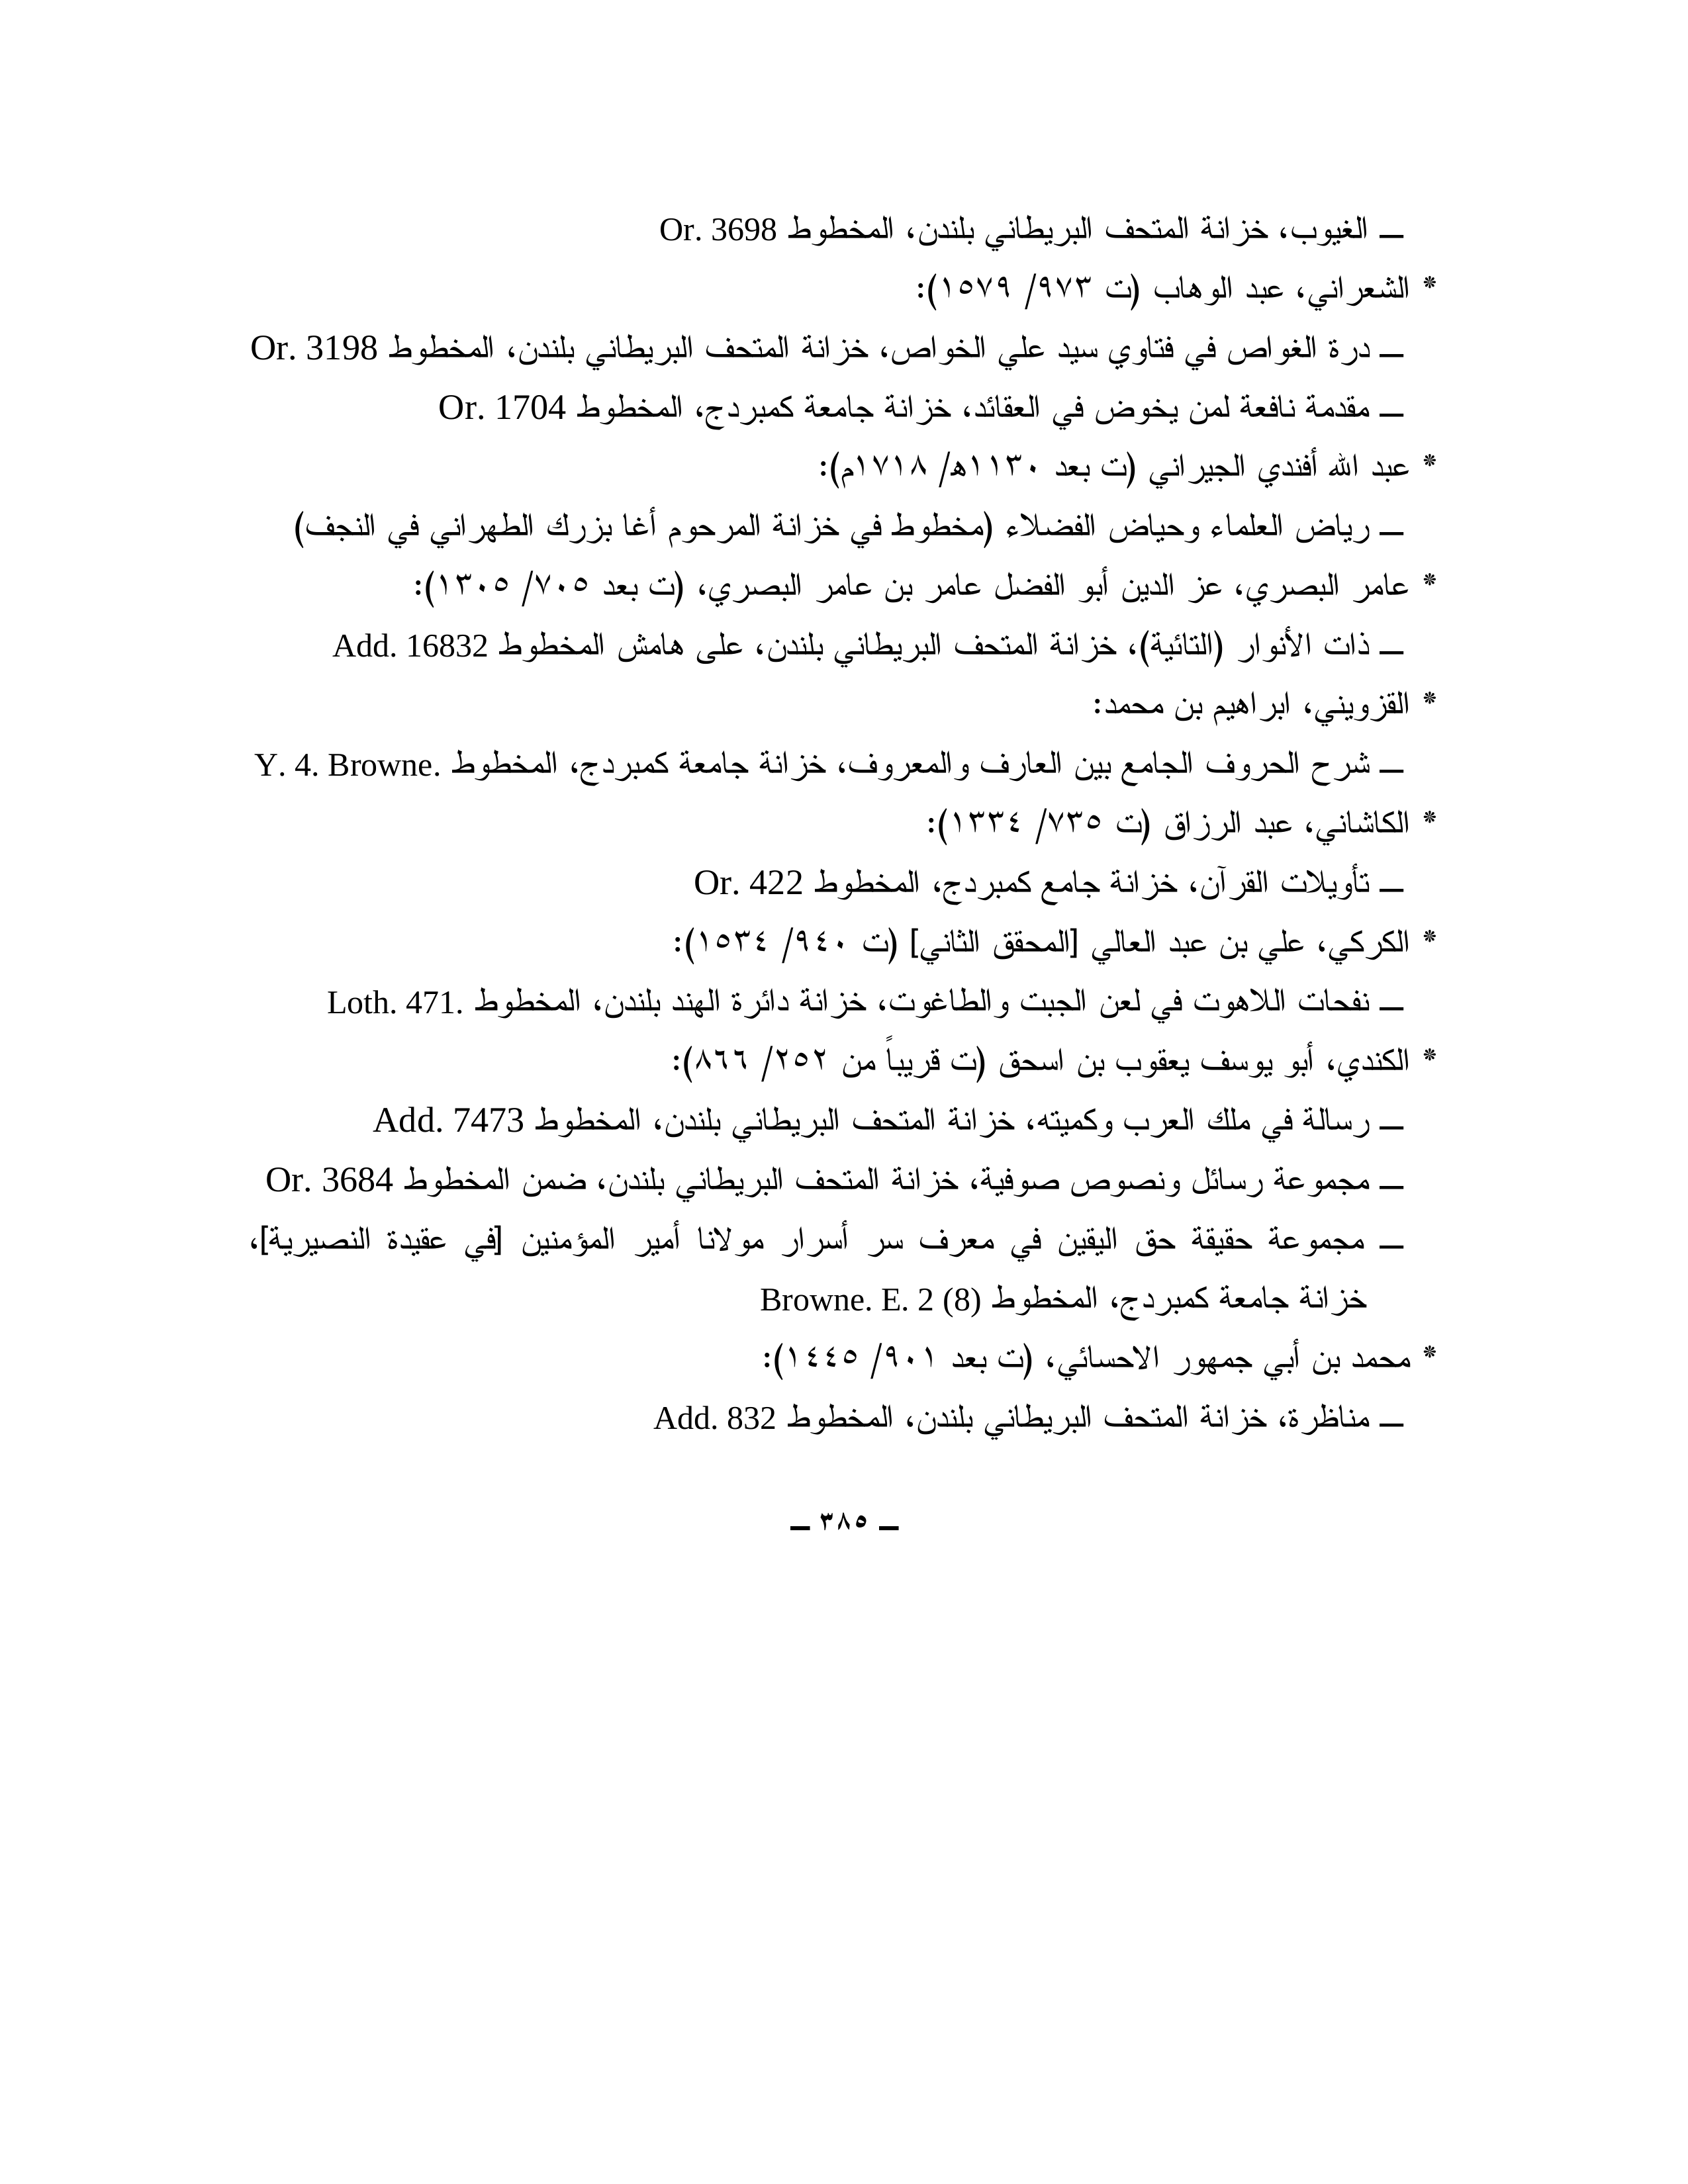 ـــ الغيوب، خزانة المتحف البريطاني بلندن، المخطوط Or. 3698
* الشعراني، عبد الوهاب (ت ٩٧٣/ ١٥٧٩):
ـــ درة الغواص في فتاوي سيد علي الخواص، خزانة المتحف البريطاني بلندن، المخطوط Or. 3198
ـــ مقدمة نافعة لمن يخوض في العقائد، خزانة جامعة كمبردج، المخطوط Or. 1704
* عبد الله أفندي الجيراني (ت بعد ١١٣٠ه/ ١٧١٨م):
ـــ رياض العلماء وحياض الفضلاء (مخطوط في خزانة المرحوم أغا بزرك الطهراني في النجف)
* عامر البصري، عز الدين أبو الفضل عامر بن عامر البصري، (ت بعد ٧٠٥/ ١٣٠٥):
ـــ ذات الأنوار (التائية)، خزانة المتحف البريطاني بلندن، على هامش المخطوط Add. 16832
* القزويني، ابراهيم بن محمد:
ـــ شرح الحروف الجامع بين العارف والمعروف، خزانة جامعة كمبردج، المخطوط Y. 4. Browne.
* الكاشاني، عبد الرزاق (ت ٧٣٥/ ١٣٣٤):
ـــ تأويلات القرآن، خزانة جامع كمبردج، المخطوط Or. 422
* الكركي، علي بن عبد العالي [المحقق الثاني] (ت ٩٤٠/ ١٥٣٤):
ـــ نفحات اللاهوت في لعن الجبت والطاغوت، خزانة دائرة الهند بلندن، المخطوط Loth. 471.
* الكندي، أبو يوسف يعقوب بن اسحق (ت قريباً من ٢٥٢/ ٨٦٦):
ـــ رسالة في ملك العرب وكميته، خزانة المتحف البريطاني بلندن، المخطوط Add. 7473
ـــ مجموعة رسائل ونصوص صوفية، خزانة المتحف البريطاني بلندن، ضمن المخطوط Or. 3684
ـــ مجموعة حقيقة حق اليقين في معرف سر أسرار مولانا أمير المؤمنين [في عقيدة النصيرية]،
خزانة جامعة كمبردج، المخطوط Browne. E. 2 (8)
* محمد بن أبي جمهور الاحسائي، (ت بعد ٩٠١/ ١٤٤٥):
ـــ مناظرة، خزانة المتحف البريطاني بلندن، المخطوط Add. 832
ـ ٣٨٥ ـ